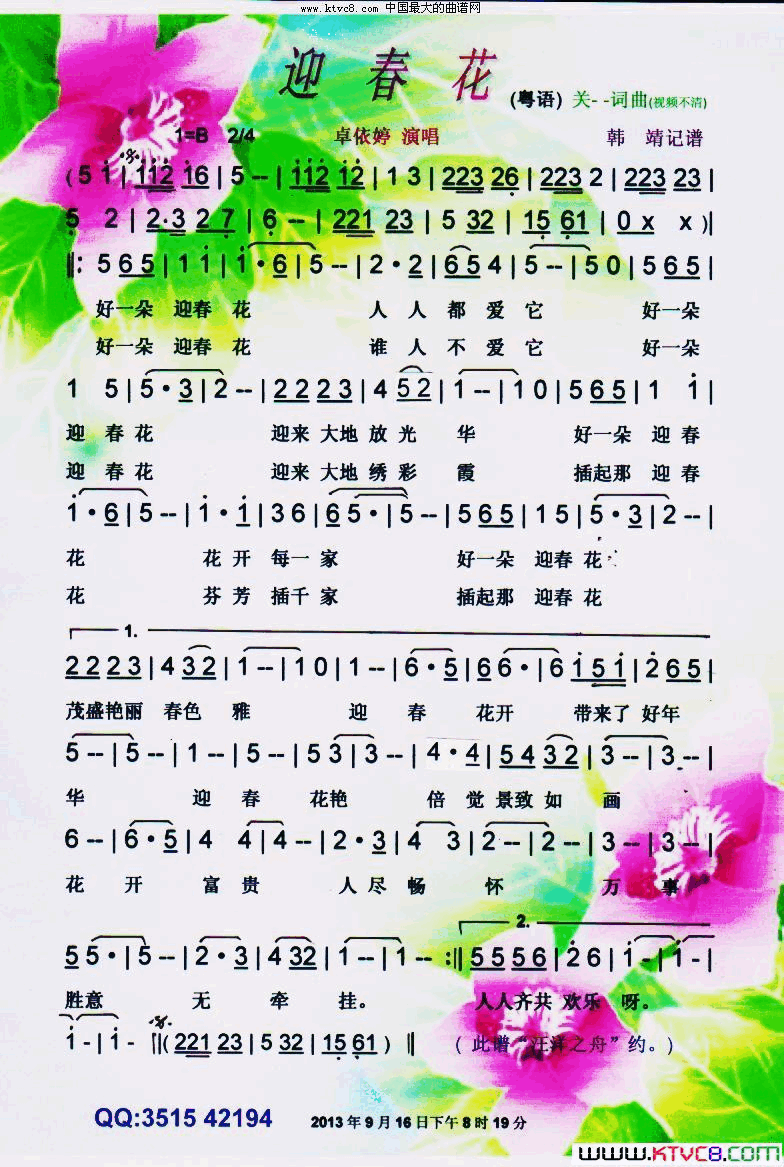 www.ktvc8.com 中国最大的曲谱网
迎春花
(粤语) 关--词曲(视频不清)
1=B 2/4 卓依婷 演唱 韩 靖记谱
(5 1|112 16|5--|112 12|1 3|223 26|223 2|223 23|
5 2|2·3 27|6--|221 23|5 32|15 61|0x x)|
‖:5 65|1 1|1·6|5--|2·2|65 4|5--|50|565|
好一朵 迎春 花 人 人 都 爱 它 好一朵
好一朵 迎春 花 谁 人 不 爱 它 好一朵
1 5|5·3|2--|2223|4 52|1--|10|565|1 1|
迎 春 花 迎来 大地 放 光 华 好一朵 迎 春
迎 春 花 迎来 大地 绣 彩 霞 插起那 迎 春
1·6|5--|1·1|36|65·|5--|565|15|5·3|2--|
花 花 开 每一 家 好一朵 迎春 花
花 芬 芳 插千 家 插起那 迎春 花
1.
2223|432|1--|10|1--|6·5|66·|6151|265|
茂盛艳丽 春色 雅 迎 春 花开 带来了 好年
5--|5--|1--|5--|53|3--|4·4|5432|3--|3--|
华 迎 春 花艳 倍 觉 景致 如 画
6--|6·5|4 4|4--|2·3|4 3|2--|2--|3--|3--|
花 开 富 贵 人 尽 畅 怀 万 事
2.
55·|5--|2·3|432|1--|1--:‖5556|26|1-|1-|
胜意 无 牵 挂。 人人齐共 欢乐 呀。
1-|1- ‖(221 23|5 32|15 61)‖ (此谱“汪洋之舟”约。)
QQ:3515 42194 2013年9月16日下午8时19分
www.KTVC8.com